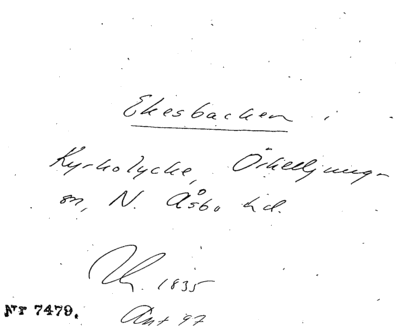 Ekesbacken i
Kyrkolycke, Örkelljunga-
sn, N. Åsbo hd.
1835
Nr 7479.
Ant 97